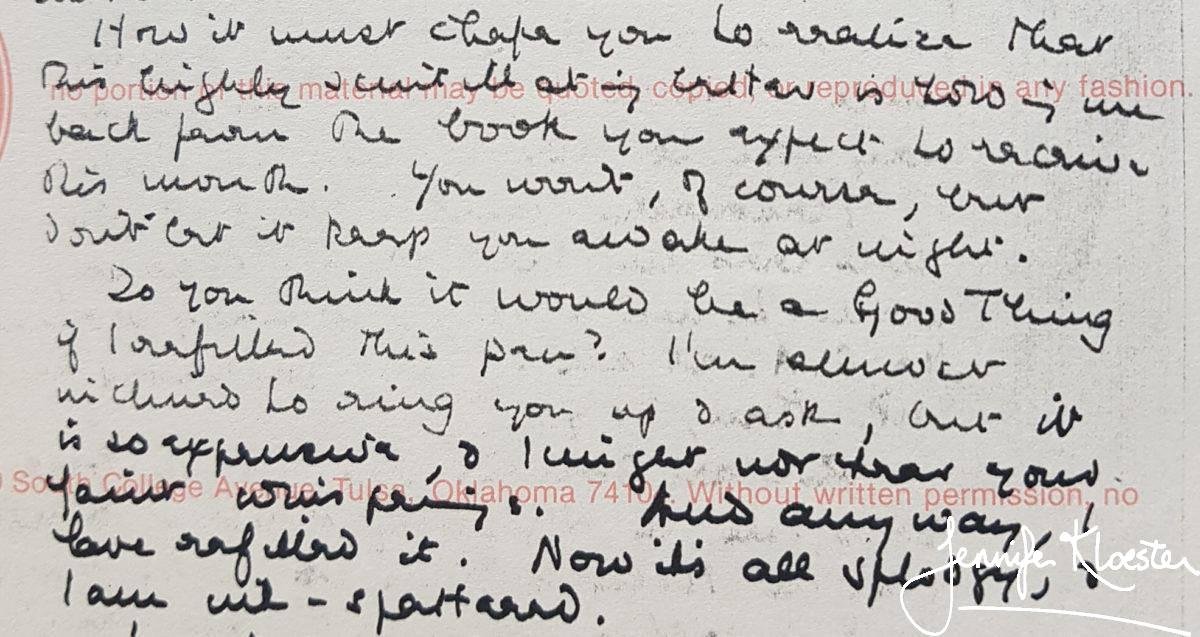 How it must chafe you to realize that
this highly scintillating letter is keeping me
no portion of this material may be quoted, copied, or reproduced in any fashion.
back from the book you expect to receive
this month. You won't, of course, but
don't let it keep you awake at night.
Do you think it would be a Good Thing
if I refilled this pen? I'm almost
inclined to ring you up & ask, but it
is so expensive, & I might not hear your
South College Avenue, Tulsa, Oklahoma 74104. Without written permission, no
faint whisperings. And anyway, I
have refilled it. Now it's all splodgy, &
Jennifer Kloester
I am ink-spattered.